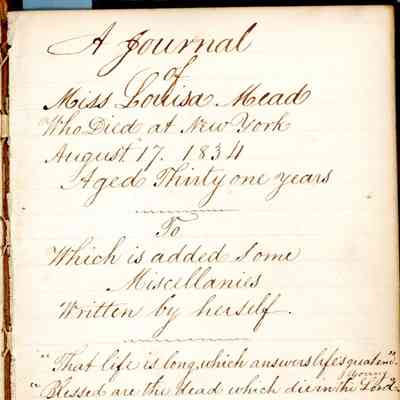 A Journal
of
Miss Louisa Mead
Who Died at New York
August 17. 1834
Aged Thirty one years
To
Which is added some
Miscellanies
Written by herself.
"That life is long, which answers life's great end".
Young
"Blessed are the dead which die in the Lord